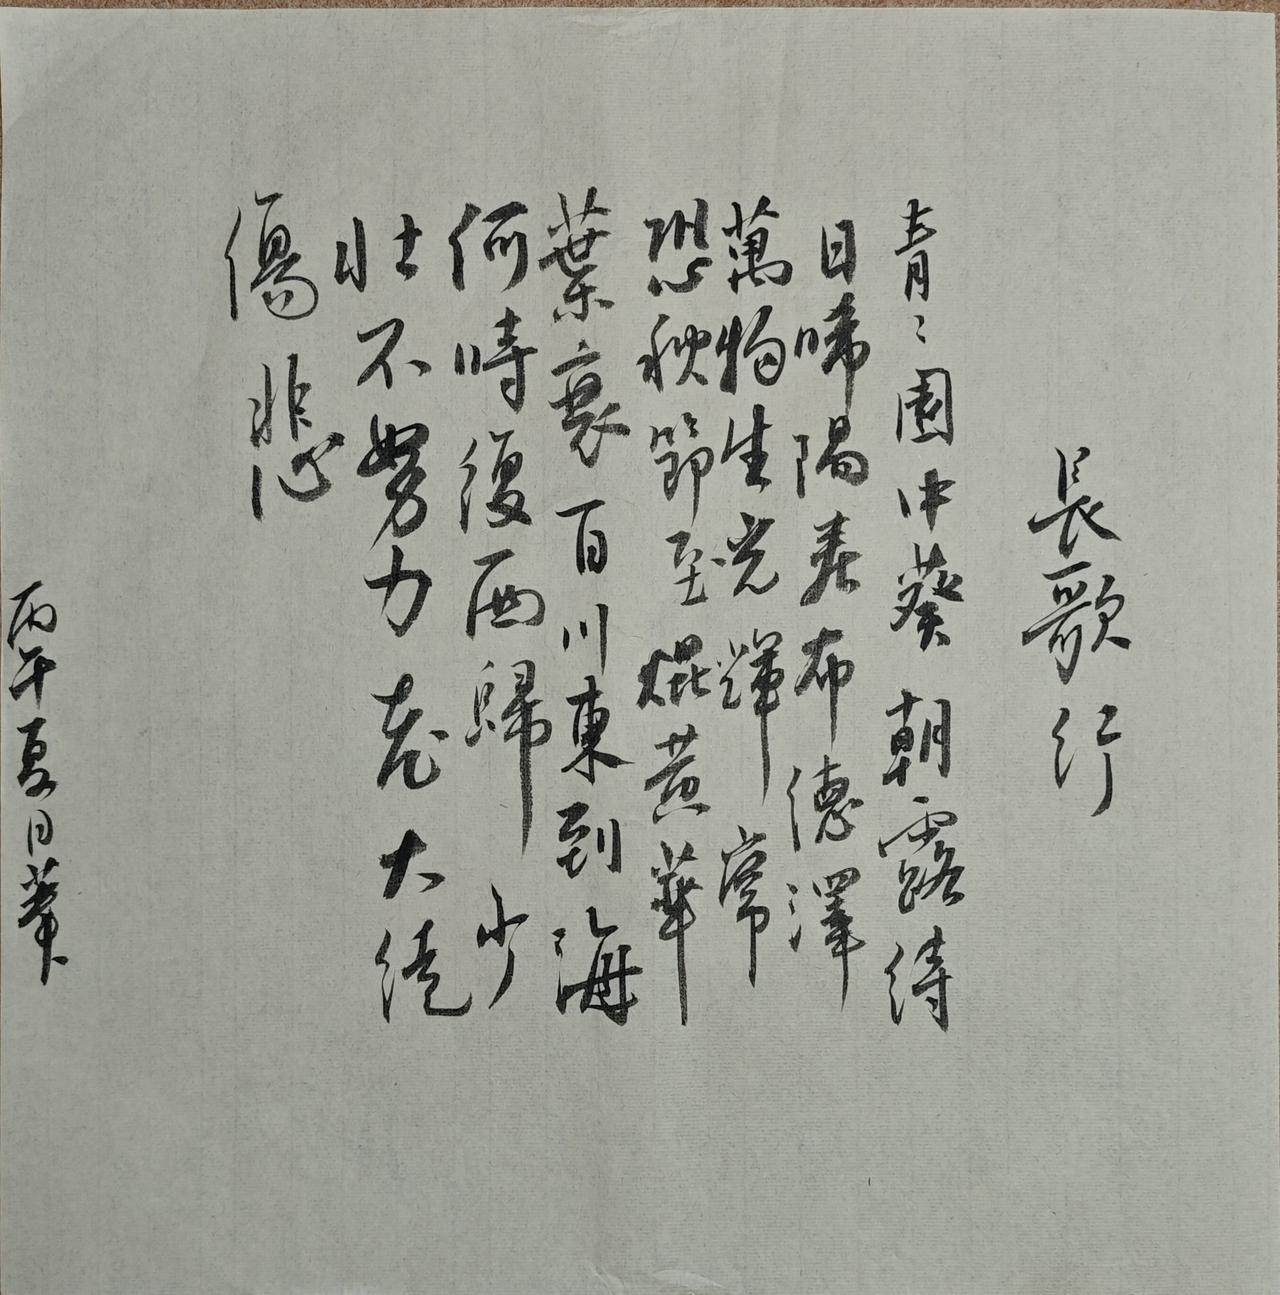 長歌行
青〻園中葵朝露待
日晞陽春布德澤
萬物生光輝常
恐秋節至焜黃華
葉衰百川東到海
何時復西歸少
壯不努力老大徒
傷悲
丙午夏日華